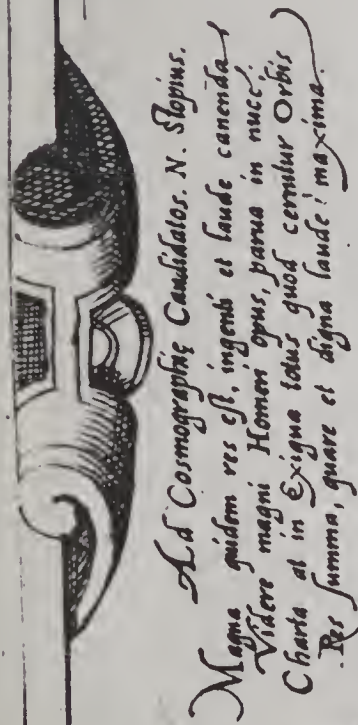 Ad Cosmographię Candidatos. N. Stopius.
Magna quidem res est, ingenti et laude canenda
Videre magni Homeri opus, parua in nuce.
Charta at in Exigua totus quod cernitur Orbis
Res summa, quare et digna laude maxima.